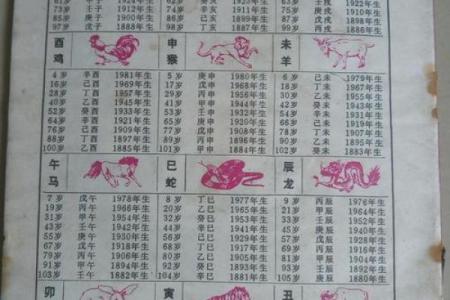 85岁 庚子 1900年生 86岁 己亥 1899年生 87岁 戊戌 1898年生
97岁 戊子 1888年生 98岁 丁亥 1887年生 99岁 丙戌 1886年生
酉 申 未
鸡 猴 羊
4岁 辛酉 1981年生 5岁 庚申 1980年生 6岁 己未 1979年生
16岁 己酉 1969年生 17岁 戊申 1968年生 18岁 丁未 1967年生
28岁 丁酉 1957年生 29岁 丙申 1956年生 30岁 乙未 1955年生
40岁 乙酉 1945年生 41岁 甲申 1944年生 42岁 癸未 1943年生
52岁 癸酉 1933年生 53岁 壬申 1932年生 54岁 辛未 1931年生
64岁 辛酉 1921年生 65岁 庚申 1920年生 66岁 己未 1919年生
76岁 己酉 1909年生 77岁 戊申 1908年生 78岁 丁未 1907年生
88岁 丁酉 1897年生 89岁 丙申 1896年生 90岁 乙未 1895年生
100岁 乙酉 1885年生 101岁 甲申 1884年生 102岁 癸未 1883年生
午 巳 辰
马 蛇 龙
7岁 戊午 1978年生 8岁 丁巳 1977年生 9岁 丙辰 1976年生
19岁 丙午 1966年生 20岁 乙巳 1965年生 21岁 甲辰 1964年生
31岁 甲午 1954年生 32岁 癸巳 1953年生 33岁 壬辰 1952年生
43岁 壬午 1942年生 44岁 辛巳 1941年生 45岁 庚辰 1940年生
55岁 庚午 1930年生 56岁 己巳 1929年生 57岁 戊辰 1928年生
67岁 戊午 1918年生 68岁 丁巳 1917年生 69岁 丙辰 1916年生
79岁 丙午 1906年生 80岁 乙巳 1905年生 81岁 甲辰 1904年生
91岁 甲午 1894年生 92岁 癸巳 1893年生 93岁 壬辰 1892年生
103岁 壬午 1882年生 104岁 辛巳 1881年生 105岁 庚辰 1880年生
卯 寅 丑